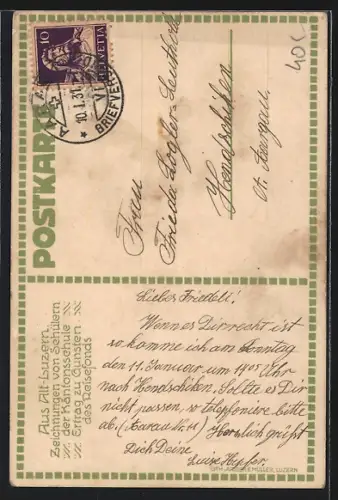 10
HELVETIA
AARAU
10.I.31.
VI
BRIEFVERSAND
40.-
POSTKARTE
Frau
Frieda
Hendschiken
Kt. Aargau.
Aus Alt-Luzern
Zeichnungen von Schülern
der Kantonsschule
Ertrag zu Gunsten
des Reisefonds
Liebes Friedeli!
Wenn es Dir recht ist
so komme ich am Sonntag
den 11. Januar um Uhr
nach Hendschiken. Sollte es Dir
nicht passen, so telefoniere bitte
ab. (Aarau ) Herzlich grüßt
Dich Deine
Luise
MÜLLER, LUZERN